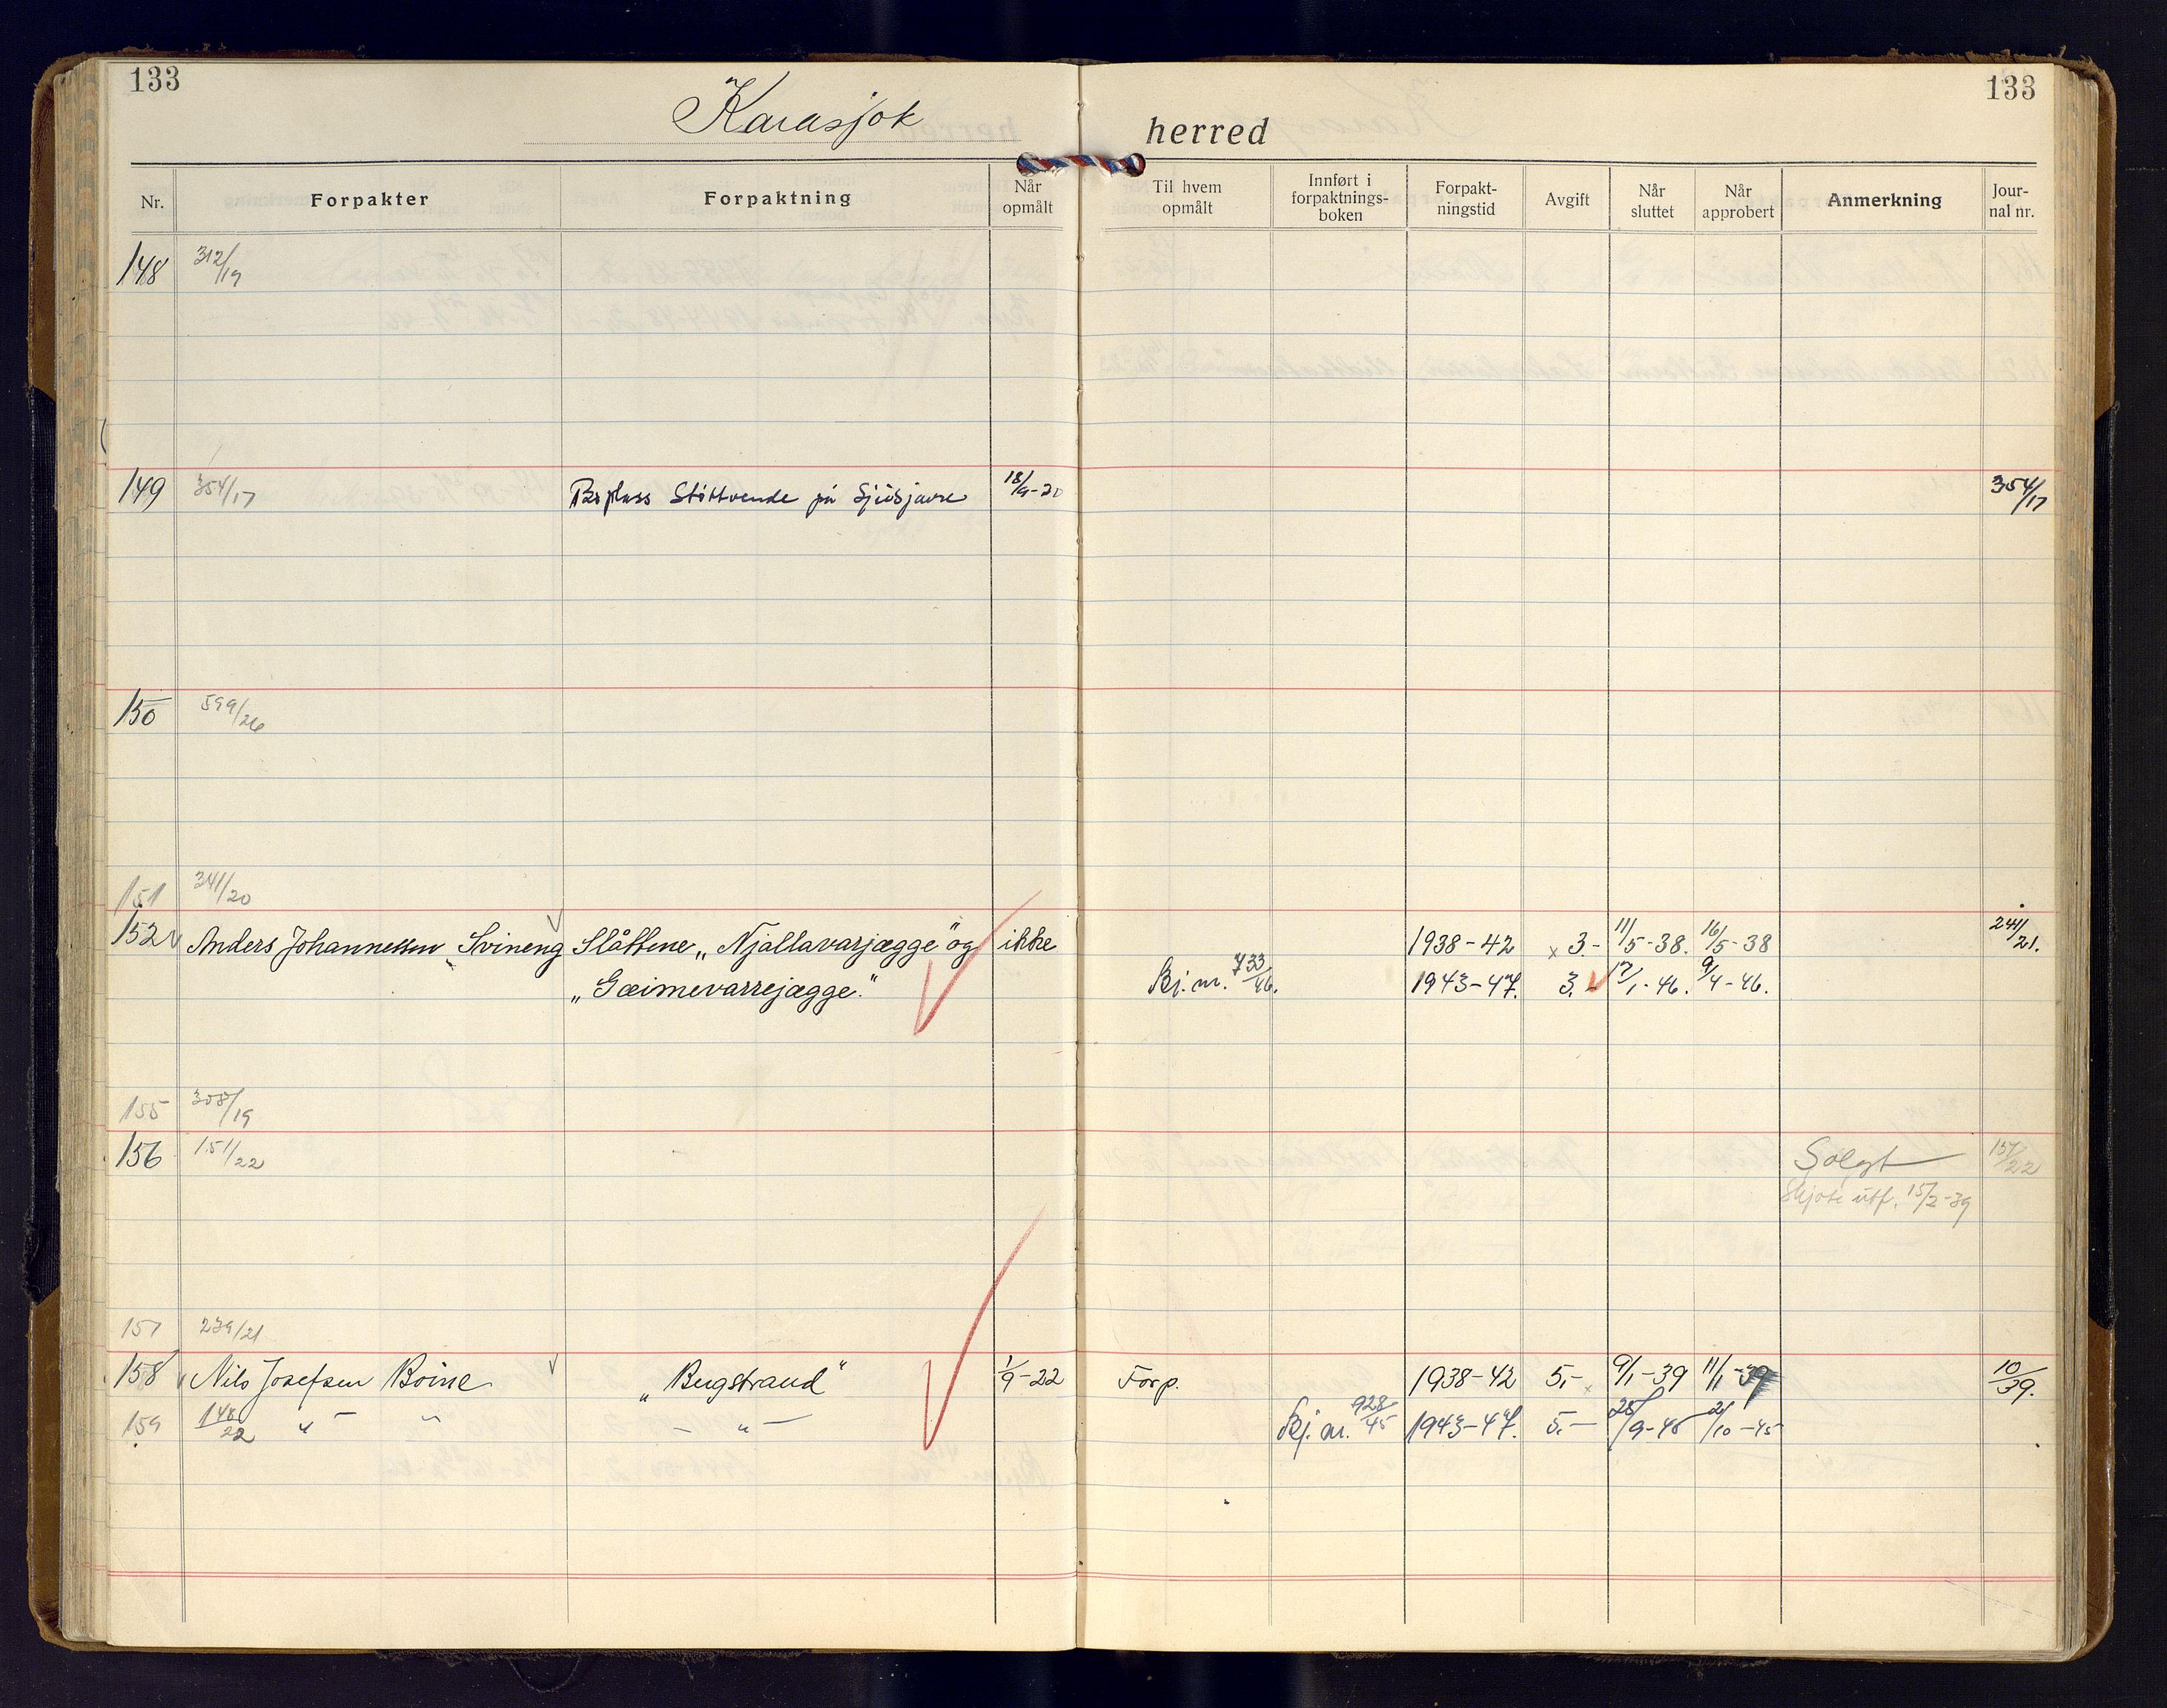 133
133
Karasjok herred
Nr. Forpakter Forpaktning Når opmålt Til hvem opmålt Innført i forpaktnings-boken Forpakt-ningstid Avgift Når sluttet Når approbert Anmerkning Jour-nal nr.
148 312/19
149 354/17 på 18/9-20 354/17
150 599/26
151 341/20
152 Anders Johannessen Svineng Slåttene „Njallavarjægge" og ikke 1938-42 x 3.- 11/5-38. 16/5-38 241/21.
„Gæimevarrejægge." Skj. nr. 733/46. 1943-47. 3.- 17/1-46. 9/4-46.
155 308/19
156 151/22 Solgt 151/22
Skjøte utf. 15/2-39
157 239/21
158 Nils Josefsen Boine „Bugstrand" 1/9-22 Forp. 1938-42 5,- 9/1-39 11/1-39 10/39.
159 148/22 " - " - " - Skj. nr. 928/45 1943-47. 5.- 28/9-45 2/10-45